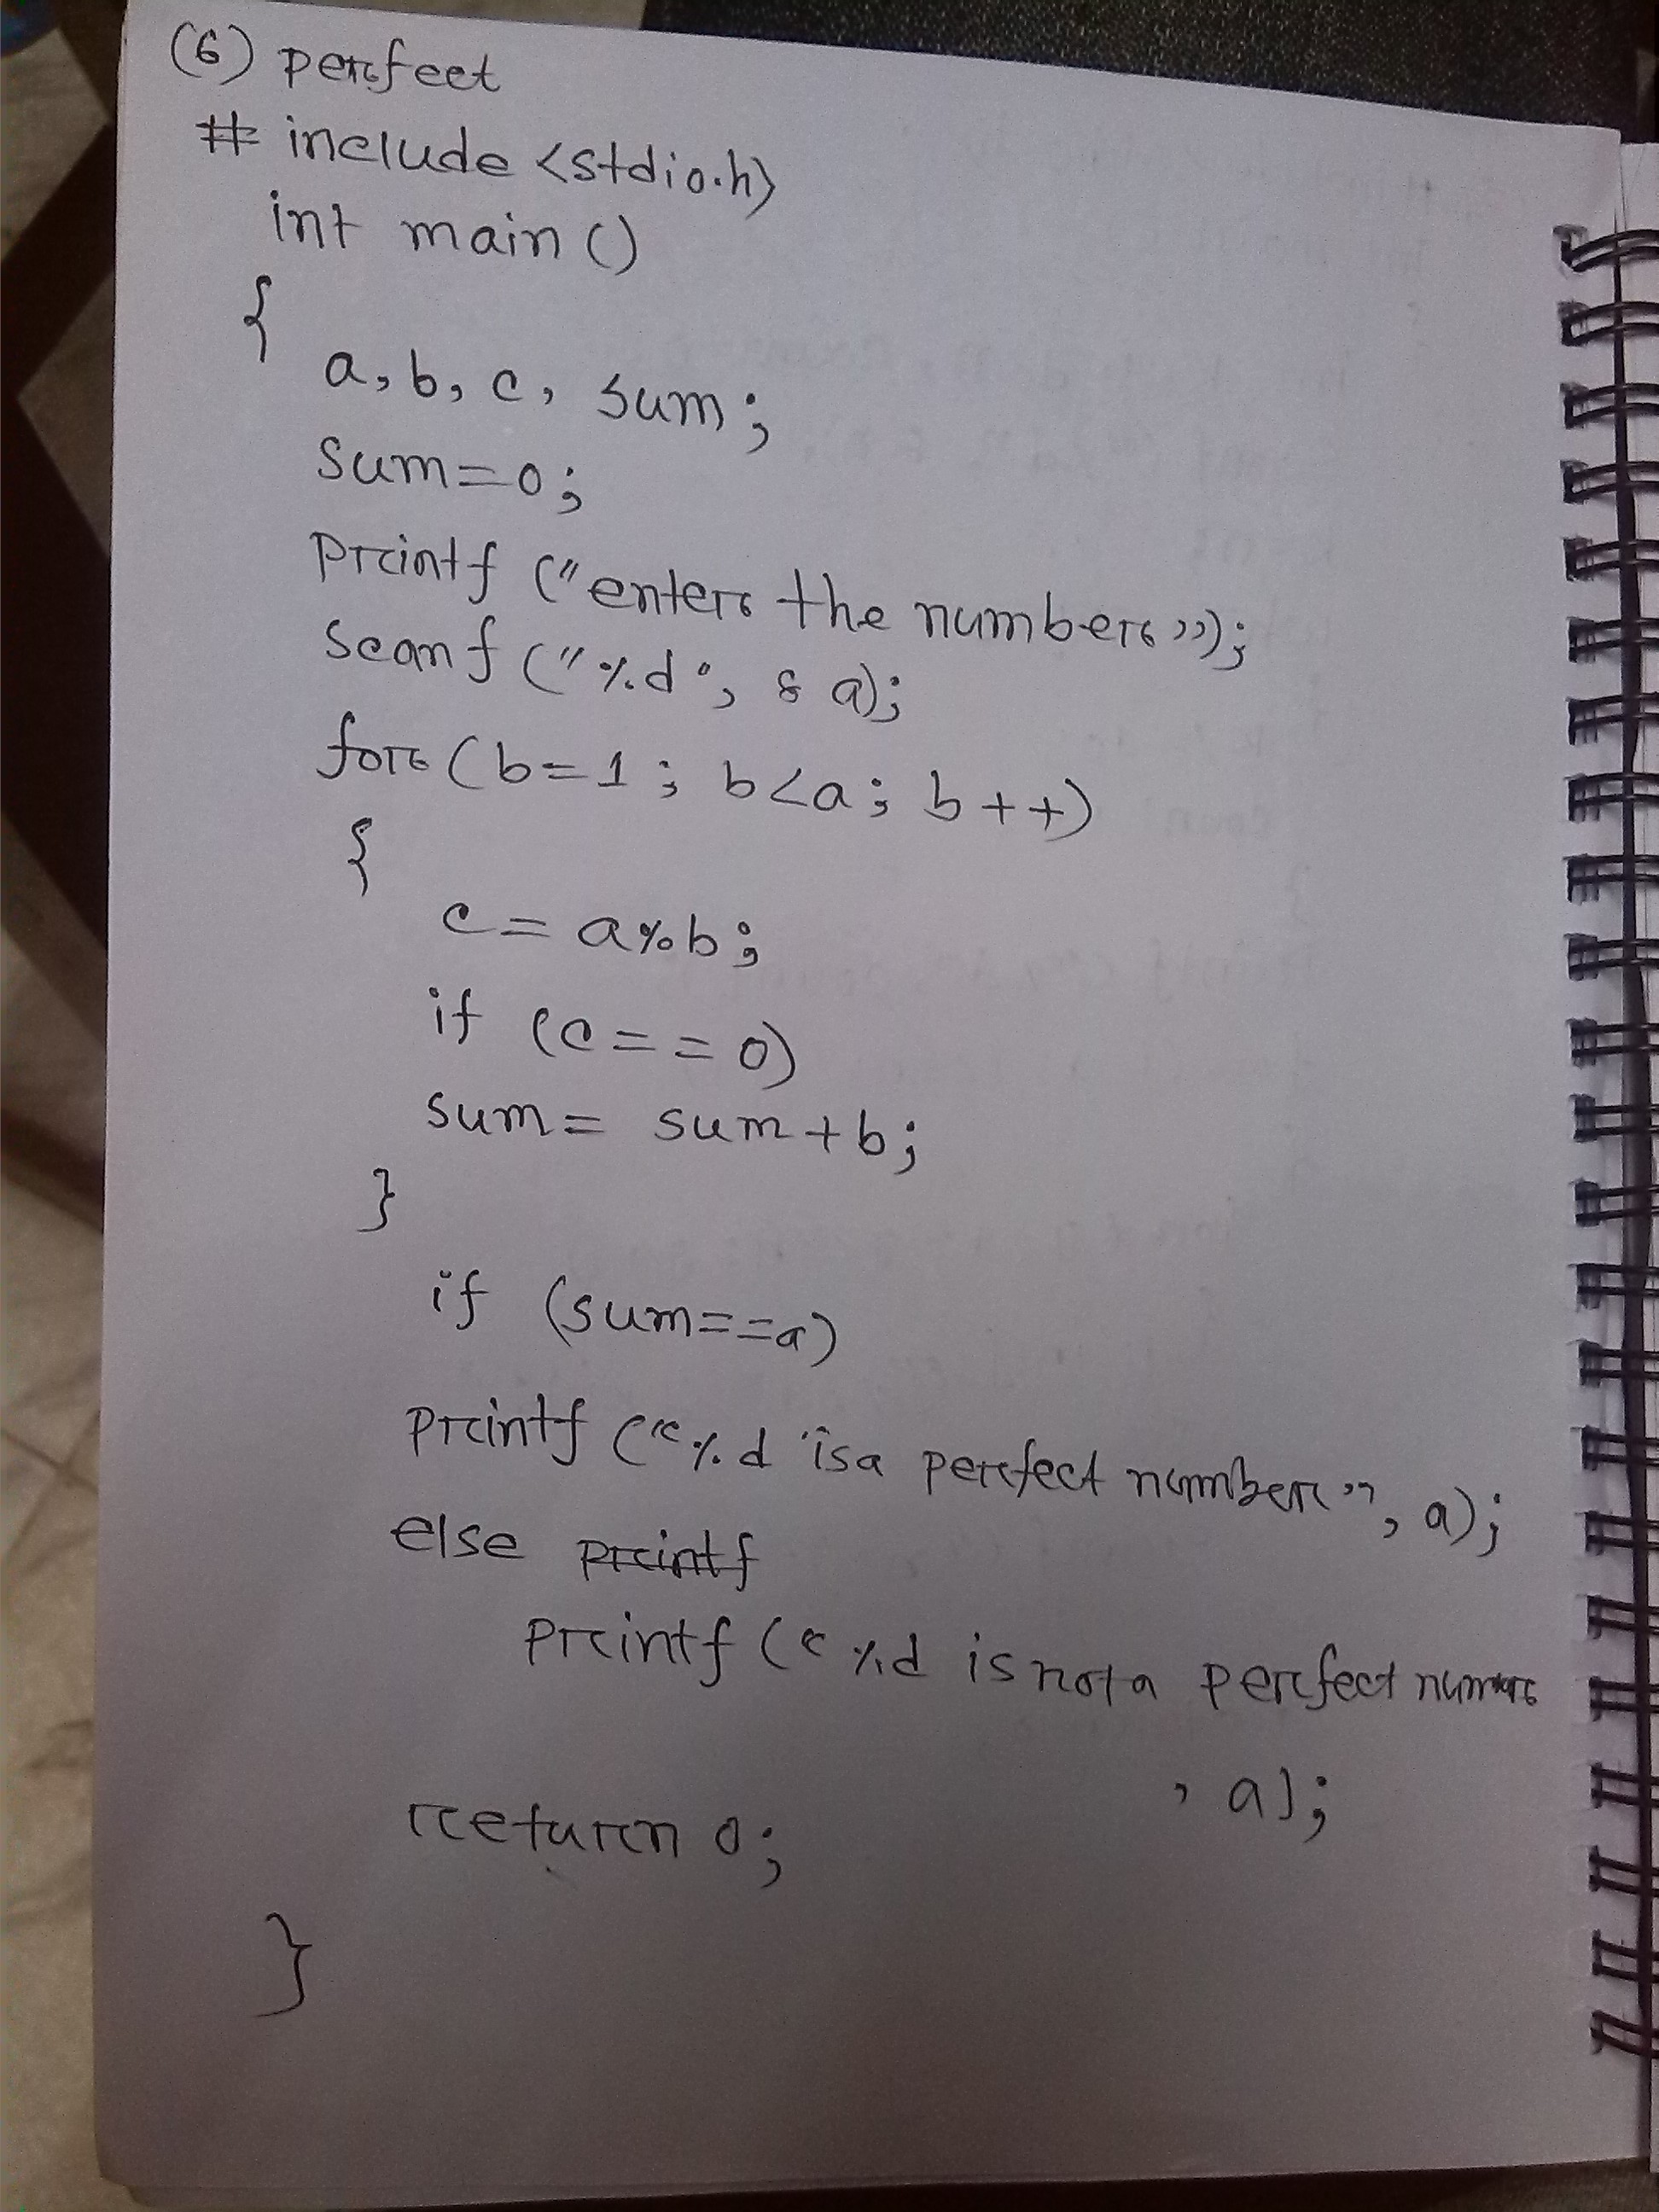 (6) perfect
# include <stdio.h>
int main ()
{
a, b, c, sum;
sum=0;
printf ("enter the number");
scanf ("%d", & a);
for (b=1; b<a; b++)
{
c = a%b;
if (c==0)
sum = sum+b;
}
if (sum==a)
printf ("%d is a perfect number", a);
else printf
printf ("%d is not a perfect number
, a);
return 0;
}